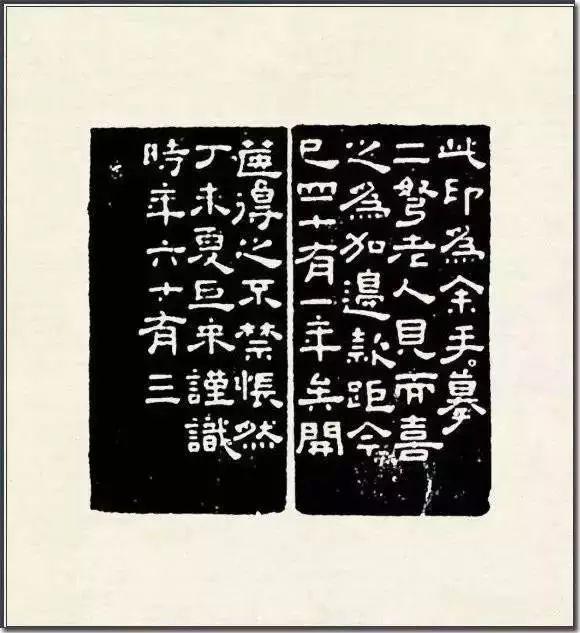 此印為余手摹
二弩老人見而喜
之為加邊款距今
已四十有一年矣開
篋得之不禁悵然
丁未夏巨來謹識
時年六十有三